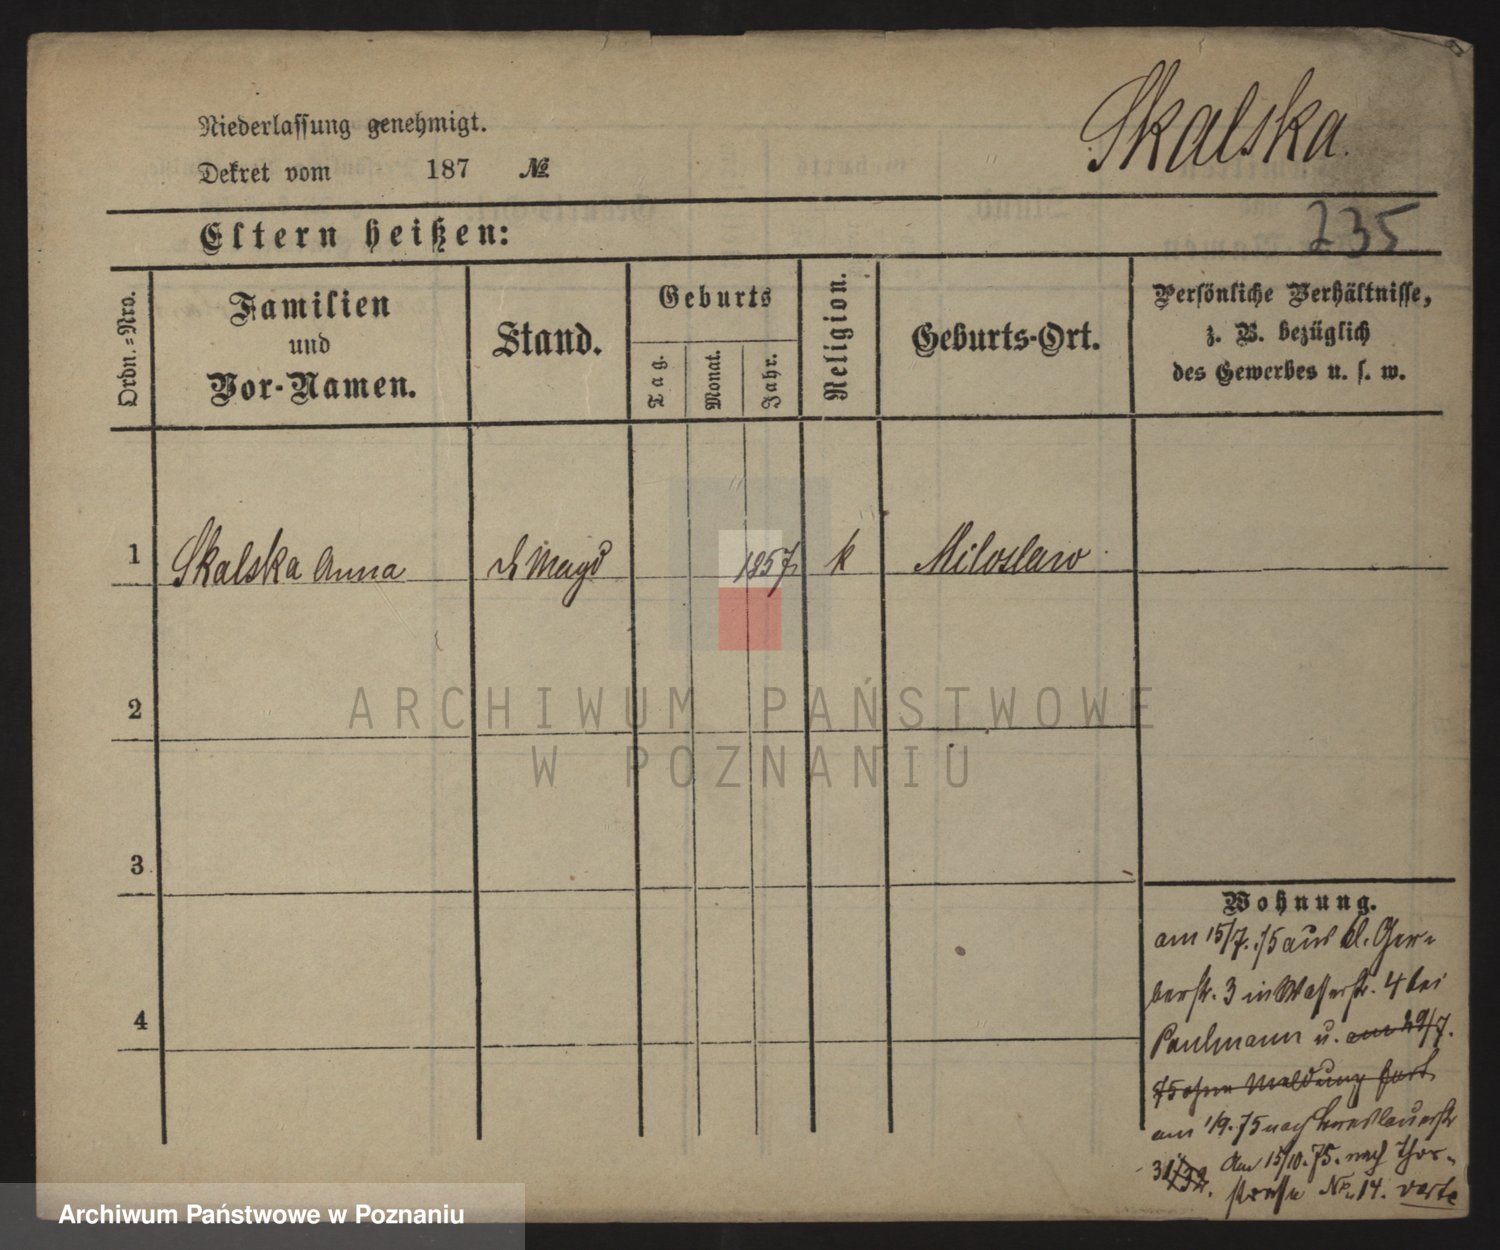 Skalska.
Niederlassung genehmigt.
Dekret vom 187 №
235
Eltern heißen:
Ordn.=Nro.
Familien
und
Vor-Namen.
Stand.
Geburts
Tag.
Monat.
Jahr.
Religion.
Geburts-Ort.
Persönliche Verhältnisse,
z. B. bezüglich
des Gewerbes u. s. w.
1 Skalska Anna d Magd 1857. k Miloslaw
2
3
4
ARCHIWUM PAŃSTWOWE
W POZNANIU
Wohnung.
am 15/7. 75 aus kl. Ger-
berstr. 3 in Wasserstr. 4 bei
Paulmann u. am 29/7.
75 ohne Meldung fort
am 1/9. 75 nach Breslauerstr
31/32. Am 15/10. 75. nach Thor-
strasse No. 14. verte
Archiwum Państwowe w Poznaniu